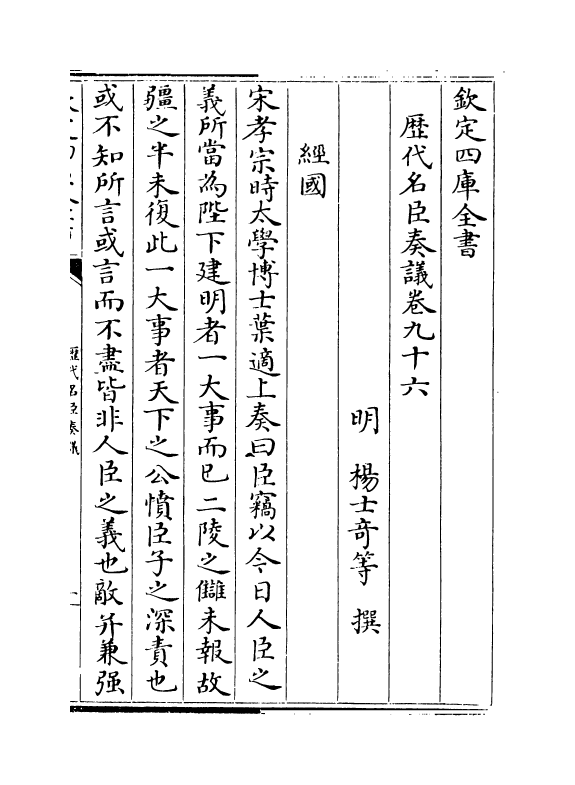 欽定四庫全書
歴代名臣奏議卷九十六
明　楊士奇等　撰
經國
宋孝宗時太學博士葉適上奏曰臣竊以今日人臣之
義所當為陛下建明者一大事而已二陵之讎未報故
疆之半未復此一大事者天下之公憤臣子之深責也
或不知所言或言而不盡皆非人臣之義也敵并兼强
歴代名臣奏議